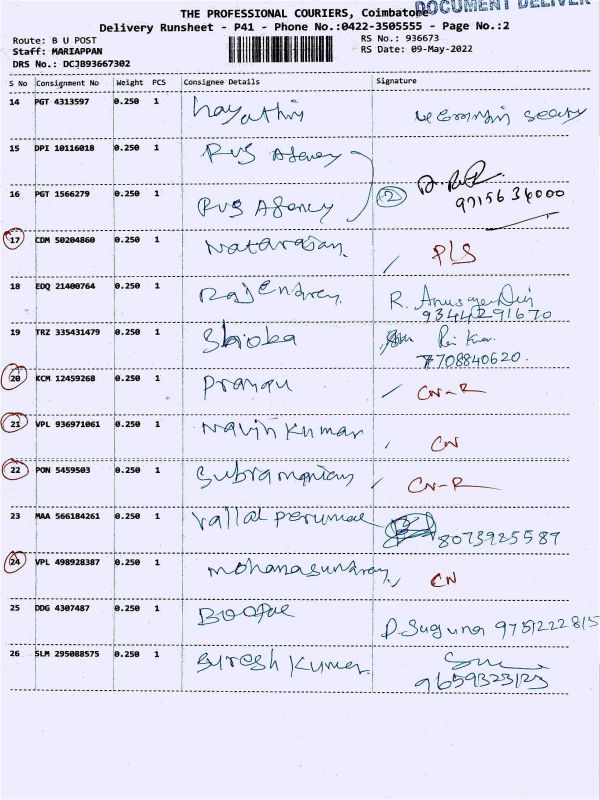 DOCUMENT DELIVER
THE PROFESSIONAL COURIERS, Coimbatore
Delivery Runsheet - P41 - Phone No.:0422-3505555 - Page No.:2
Route: B U POST RS No.: 936673
Staff: MARIAPPAN RS Date: 09-May-2022
DRS No.: DCJB93667302
S No Consignment No Weight PCS Consignee Details Signature
14 PGT 4313597 0.250 1
15 DPI 10116018 0.250 1 RVS Agency
16 PGT 1566279 0.250 1 RVS Agency 2
9715636000
17 CDM 50204860 0.250 1 Natarajan PLS
18 EDQ 21400764 0.250 1 Rajendren R.
9344291670
19 TRZ 335431479 0.250 1
7708840620.
20 KCM 12459268 0.250 1 CN-R
21 VPL 936971061 0.250 1 Navin Kumar CN
22 PON 5459503 0.250 1 Subramanian CN-R
23 MAA 566184261 0.250 1 Vallal Perumal 8073925587
24 VPL 498928387 0.250 1 Mohanasundray CN
25 DDG 4307487 0.250 1 D. Suguna 9751222815
26 SLM 295088575 0.250 1 Suresh Kumar
9659323123